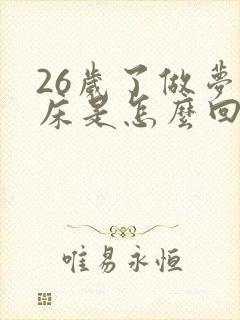 26歲了做夢
床是怎麼回
唯易永恒